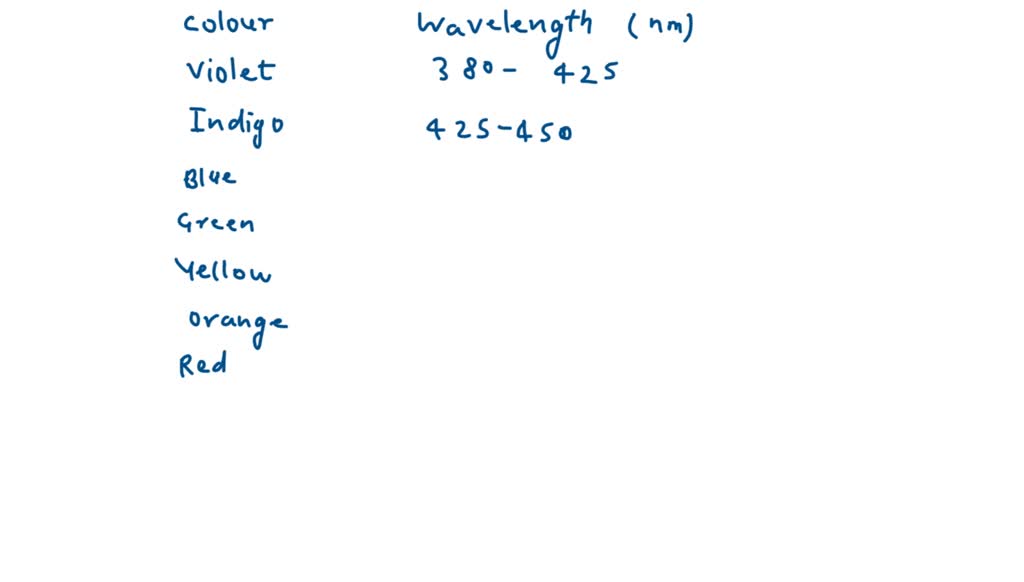 Colour Wavelength (nm)
Violet 380- 425
Indigo 425-450
Blue
Green
Yellow
Orange
Red